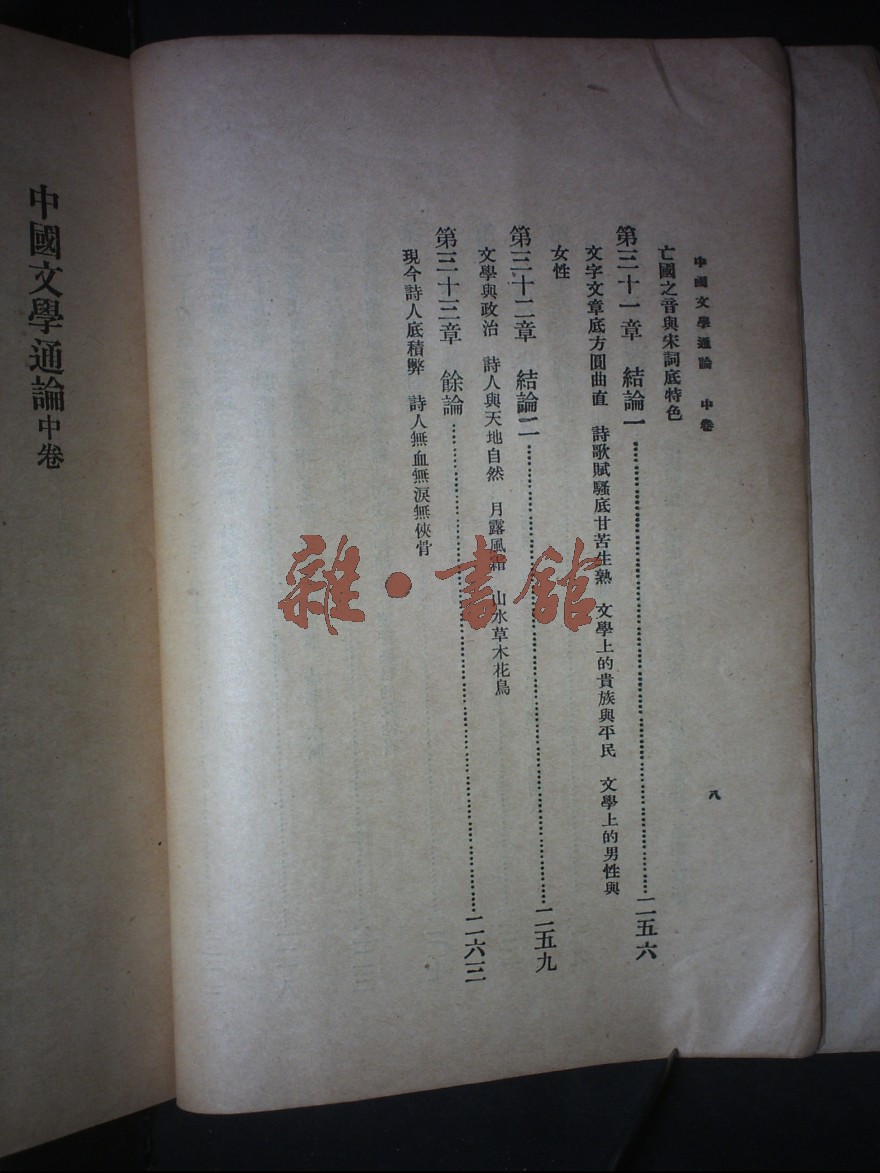 中國文學通論 中卷
八
亡國之音與宋詞底特色
第三十一章 結論一……二五六
文字文章底方圓曲直 詩歌賦騷底甘苦生熟 文學上的貴族與平民 文學上的男性與
女性
第三十二章 結論二……二五九
文學與政治 詩人與天地自然 月露風霜 山水草木花鳥
第三十三章 餘論……二六三
現今詩人底積弊 詩人無血無淚無俠骨
中國文學通論中卷
雜·書館